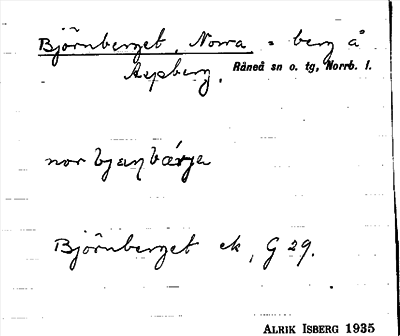 Björnberget, Norra = berg å
Aspberg. Råneå sn o. tg, Norrb. l.
nor bjan bærga
Björnberget ek, G 29.
ALRIK ISBERG 1935